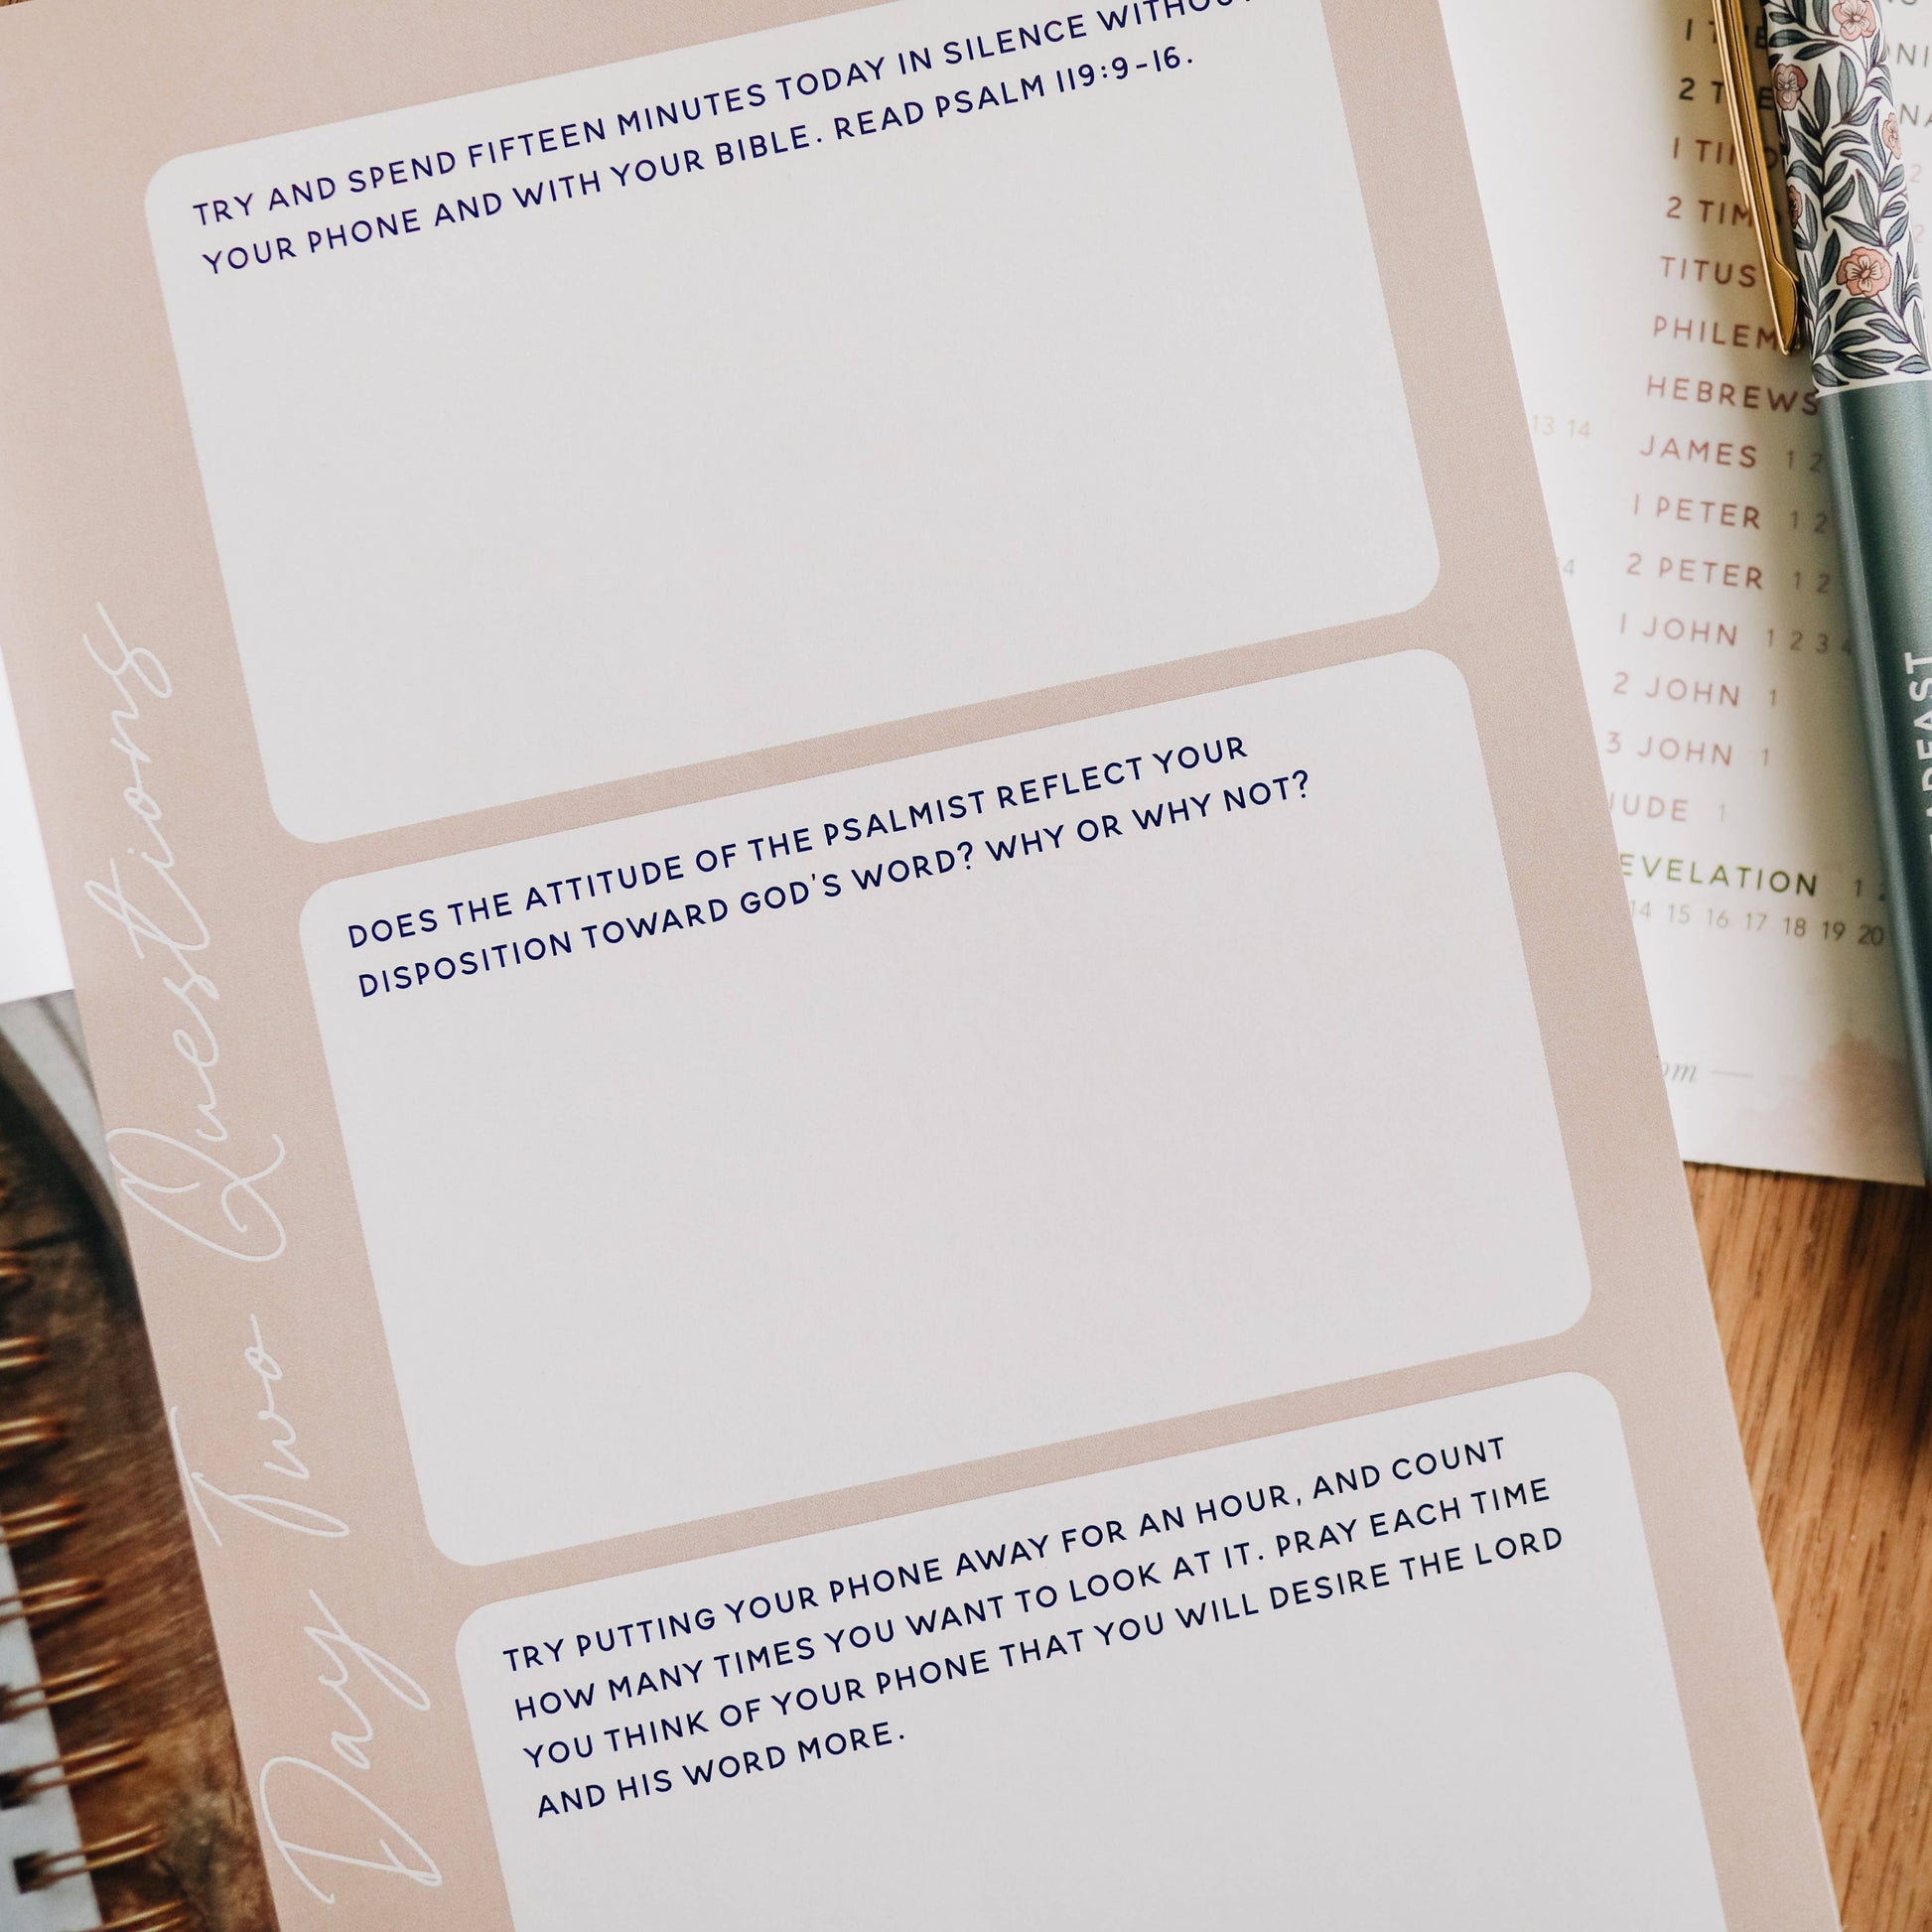 TRY AND SPEND FIFTEEN MINUTES TODAY IN SILENCE WITHOUT
YOUR PHONE AND WITH YOUR BIBLE. READ PSALM 119:9-16.
DOES THE ATTITUDE OF THE PSALMIST REFLECT YOUR
DISPOSITION TOWARD GOD'S WORD? WHY OR WHY NOT?
TRY PUTTING YOUR PHONE AWAY FOR AN HOUR, AND COUNT
HOW MANY TIMES YOU WANT TO LOOK AT IT. PRAY EACH TIME
YOU THINK OF YOUR PHONE THAT YOU WILL DESIRE THE LORD
AND HIS WORD MORE.
Day Two Questions
2 TIM
TITUS
PHILEM
HEBREWS
13 14
JAMES 1 2
1 PETER 1 2
4
2 PETER 1 2
1 JOHN 1 2 3 4
2 JOHN 1
3 JOHN 1
JUDE 1
EVELATION 1 2
14 15 16 17 18 19 20
om